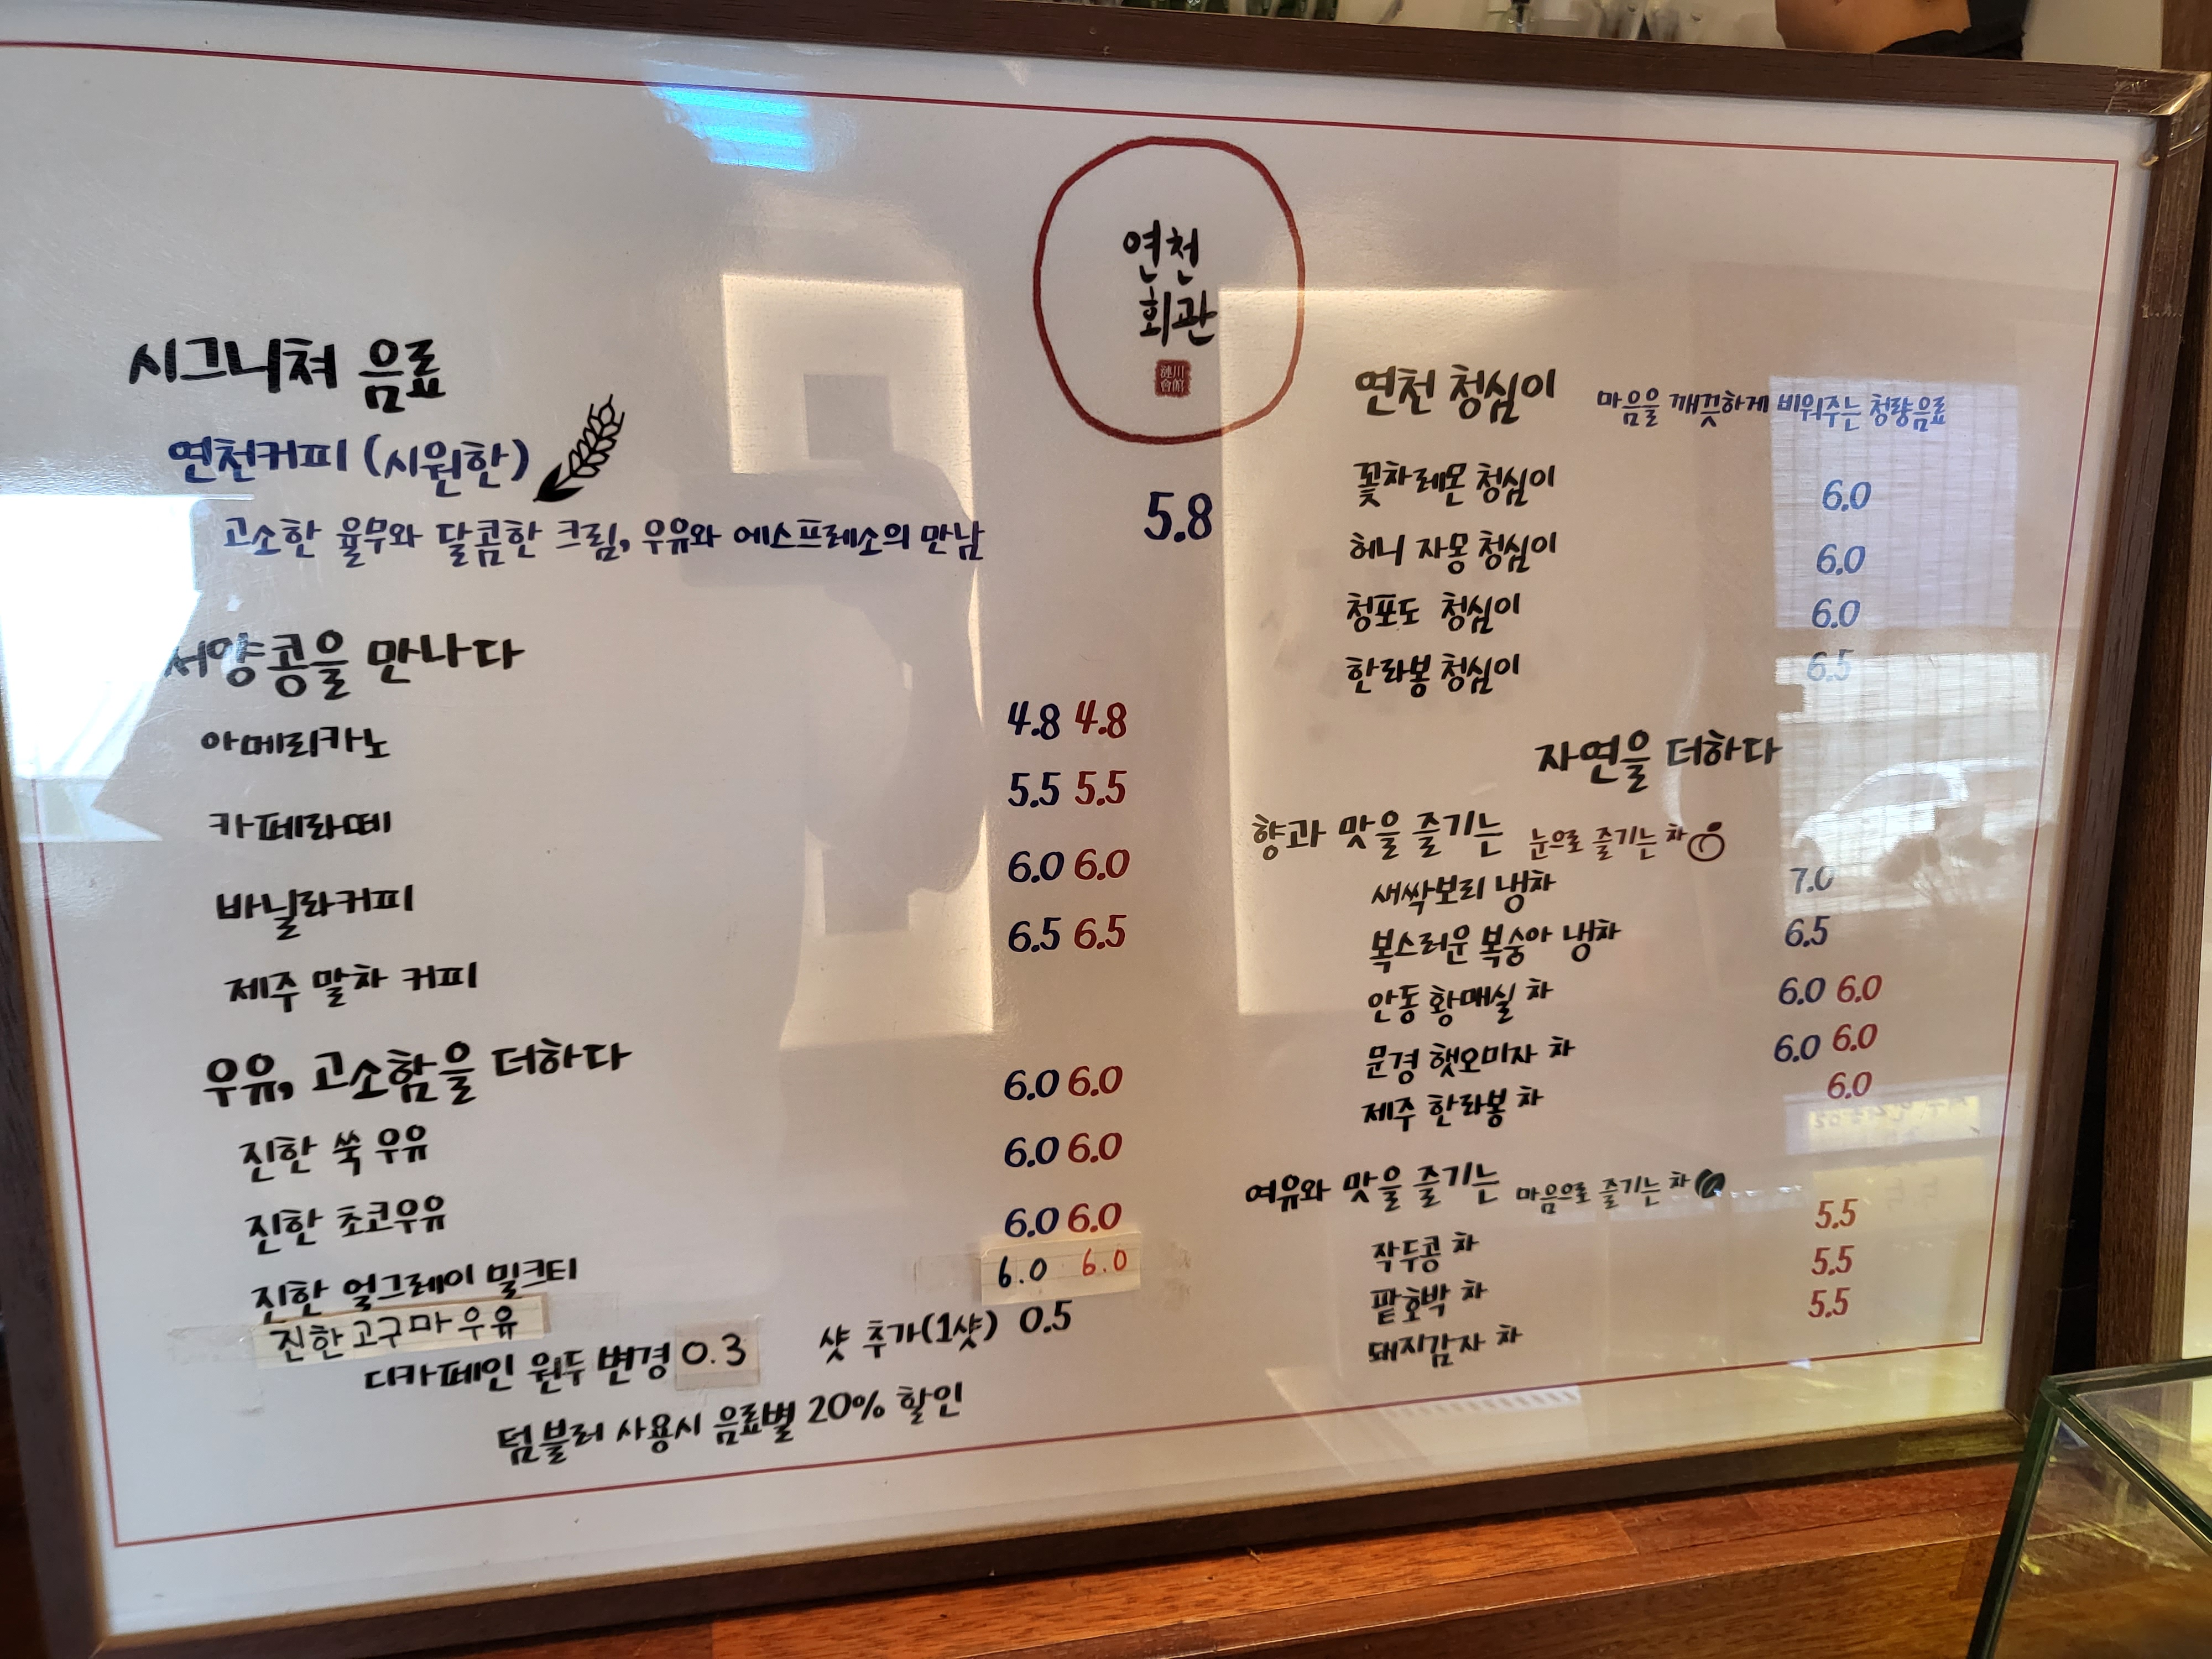 연천
회관
漣川
會館
시그니쳐 음료
연천커피 (시원한)
고소한 율무와 달콤한 크림, 우유와 에스프레소의 만남 5.8
서양콩을 만나다
아메리카노 4.8 4.8
카페라떼 5.5 5.5
바닐라커피 6.0 6.0
제주 말차 커피 6.5 6.5
우유, 고소함을 더하다
진한 쑥 우유 6.0 6.0
진한 초코우유 6.0 6.0
진한 얼그레이 밀크티 6.0 6.0
진한고구마우유 6.0 6.0
디카페인 원두 변경 0.3 샷 추가(1샷) 0.5
텀블러 사용시 음료별 20% 할인
연천 청심이 마음을 깨끗하게 비워주는 청량음료
꽃차레몬 청심이 6.0
허니 자몽 청심이 6.0
청포도 청심이 6.0
한라봉 청심이 6.5
자연을 더하다
향과 맛을 즐기는 눈으로 즐기는 차
새싹보리 냉차 7.0
복스러운 복숭아 냉차 6.5
안동 황매실 차 6.0 6.0
문경 햇오미자 차 6.0 6.0
제주 한라봉 차 6.0
여유와 맛을 즐기는 마음으로 즐기는 차
작두콩 차 5.5
팥호박 차 5.5
돼지감자 차 5.5